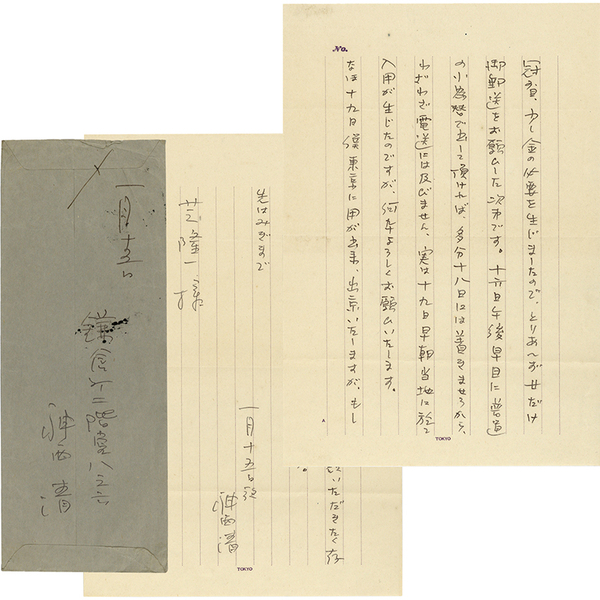 No.
冠省、少し金の必要を生じましたので、とりあへず廿だけ
御郵送をお願ひした次第です。十六日午後早目に普通
の小為替で出して頂ければ、多分十八日には着きませうから、
わざわざ電送には及びません、実は十九日早朝当地に於て
入用が生じたのですが、何卒よろしくお願ひいたします。
なほ十九日僕東京に用が出来、出京いたしますが、もし
TOKYO
いただきたく存
先はみぎまで
一月十五日夜
神西清
芝隆一様
TOKYO
一月十五日
鎌倉市二階堂八之六
神西清